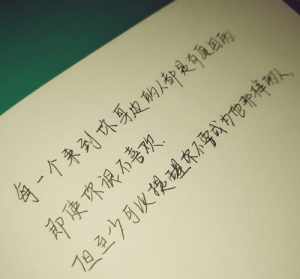 每一个来到你身边的人都是有原因的
即使你很不喜欢.
但至少可以提醒你不要成为他那样的人.